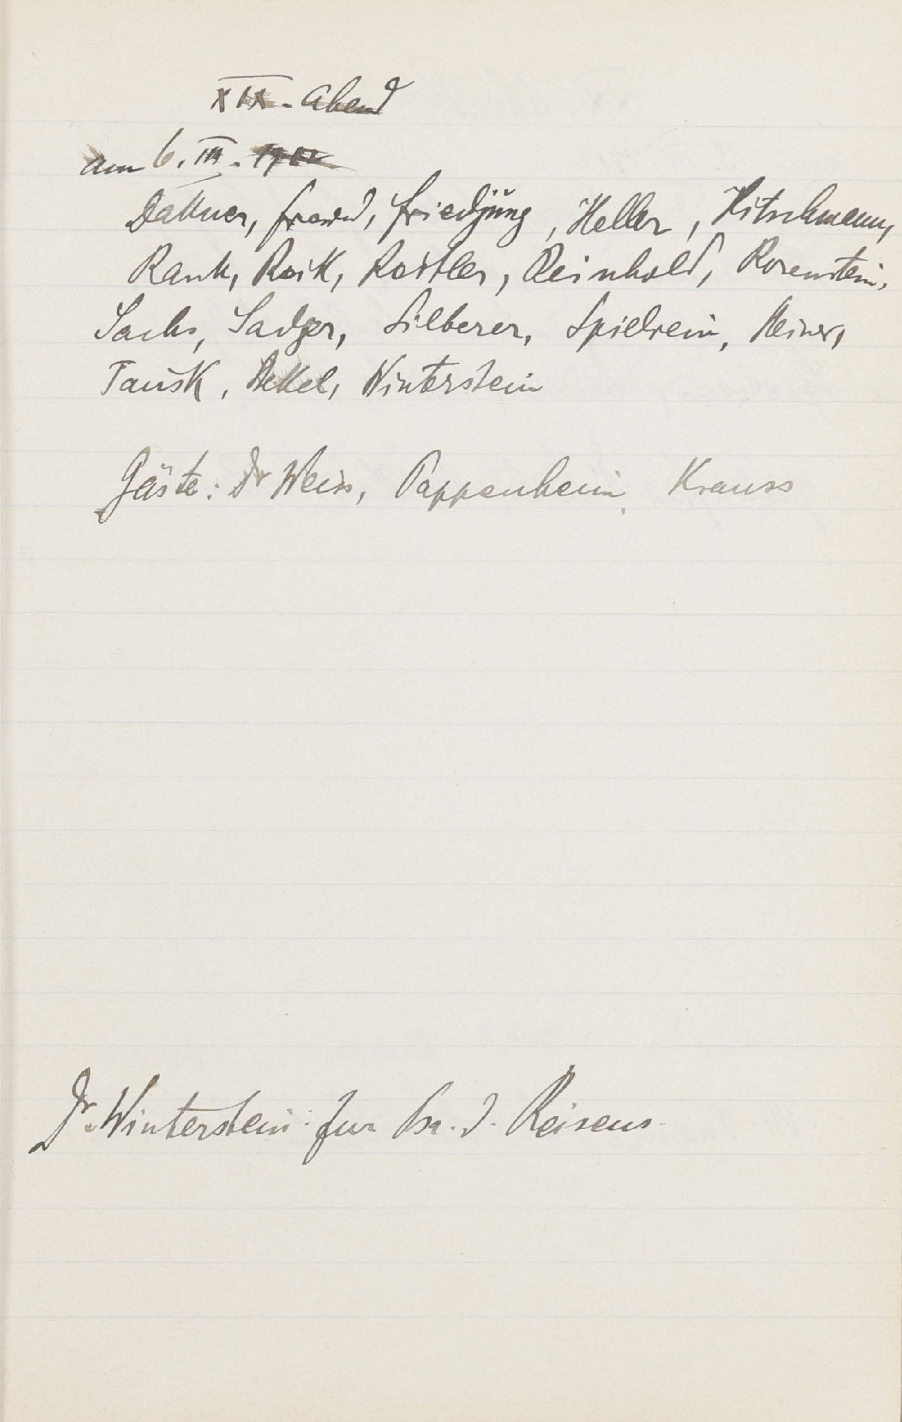 XIX. Abend
am 6. III. 1912
Dattner, Freud, Friedjung, Heller, Hitschmann,
Rank, Reik, Reitler, Reinhold, Rosenstein,
Sachs, Sadger, Silberer, Spielrein, Steiner,
Tausk, Stekel, Winterstein
Gäste: Dr Weiss, Pappenheim, Krauss
Dr. Winterstein: Zur Psa. d. Reisens.